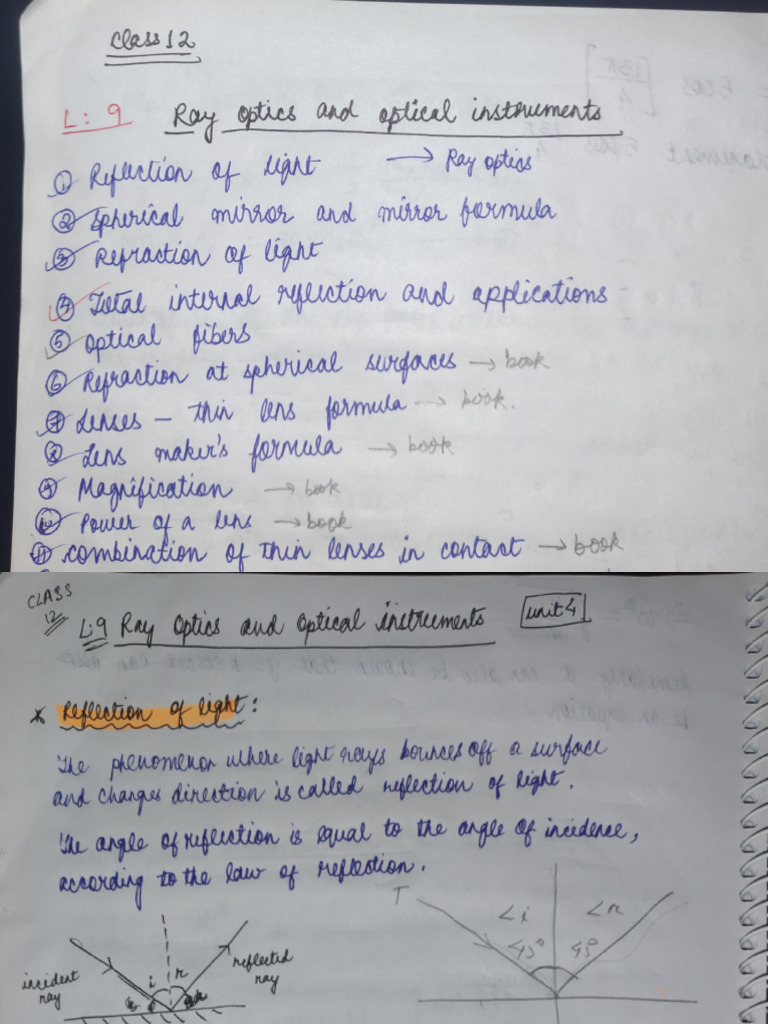 Class 12
L: 9 Ray optics and optical instruments
① Reflection of light → Ray optics
② Spherical mirror and mirror formula
③ Refraction of light
④ Total internal reflection and applications
⑤ Optical fibers
⑥ Refraction at spherical surfaces → book
⑦ Lenses - thin lens formula → book.
⑧ Lens maker's formula → book
⑨ Magnification → book
⑩ Power of a lens → book
⑪ combination of thin lenses in contact → book
CLASS
12
L:9 Ray Optics and Optical instruments unit 4
* Reflection of light:
The phenomenon where light rays bounces off a surface
and changes direction is called reflection of light.
The angle of reflection is equal to the angle of incidence,
according to the law of reflection.
T
∠i ∠r
45° 45°
i r
incident
ray
reflected
ray